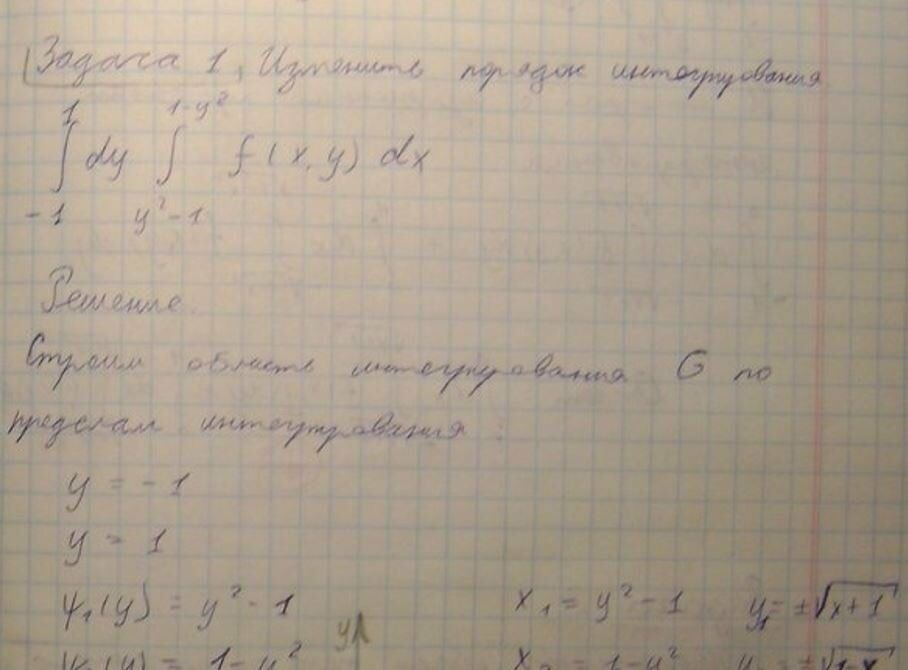 Задача 1, Изменить порядок интегрирования
1 1-y²
∫ dy ∫ f(x,y) dx
-1 y²-1
Решение.
Строим область интегрирования G по
пределам интегрирования:
y = -1
y = 1
ψ₁(y) = y² - 1 x₁ = y² - 1 y₁ = ±√x+1
y
ψ₂(y) = 1 - y² x₂ = 1 - y² y₂ = ±√1-x